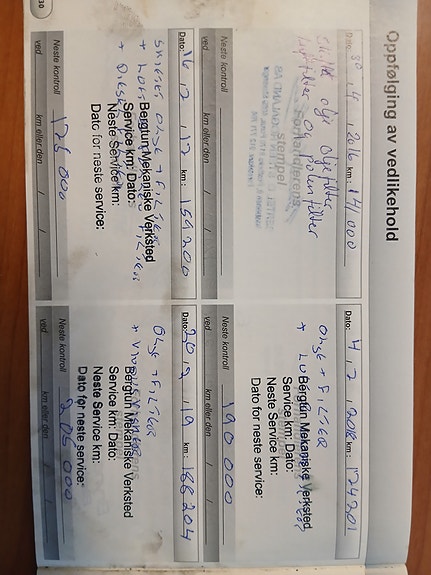 Oppfølging av vedlikehold
Dato: 30 . 4 / 2016 km: 141000
Skiftet olje oljefilter
luftfilter og polenfilter
Forhandlerens
stempel
Neste kontroll
ved km eller den / /
Dato: 4 , 2 , 2018 km: 174201
OLJE + FILTER
+ LUFTFILTER
Bergtun Mekaniske Verksted
Service km: Dato:
Neste Service km:
Dato for neste service:
Neste kontroll 190 000
ved km eller den / /
Dato: 16 , 12 , 17 km: 159200
SKIFTET OLJE + FILTER
+ LUFTFILTER
Bergtun Mekaniske Verksted
Service km: Dato:
Neste Service km:
Dato for neste service:
Neste kontroll 175 000
ved km eller den / /
Dato: 20 , 9 , 19 km: 188204
OLJE + FILTER
Bergtun Mekaniske Verksted
Service km: Dato:
Neste Service km:
Dato for neste service:
Neste kontroll 205 000
ved km eller den / /
30